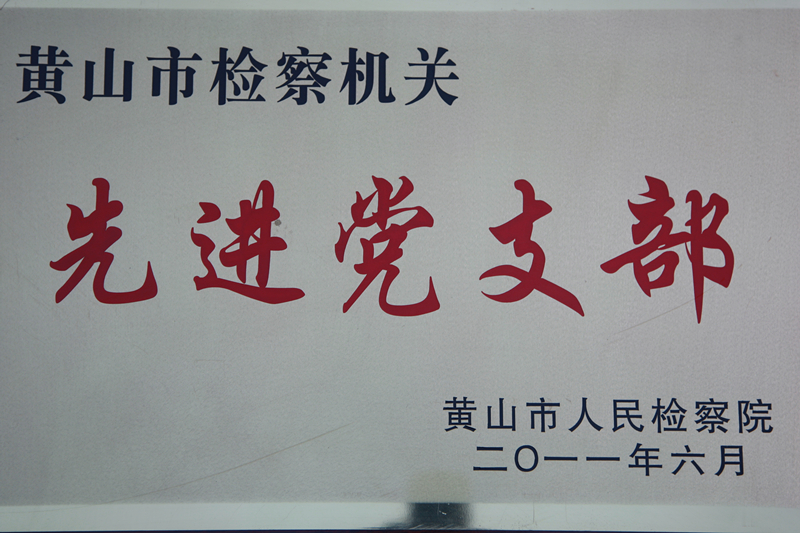 黄山市检察机关
先进党支部
黄山市人民检察院
二〇一一年六月